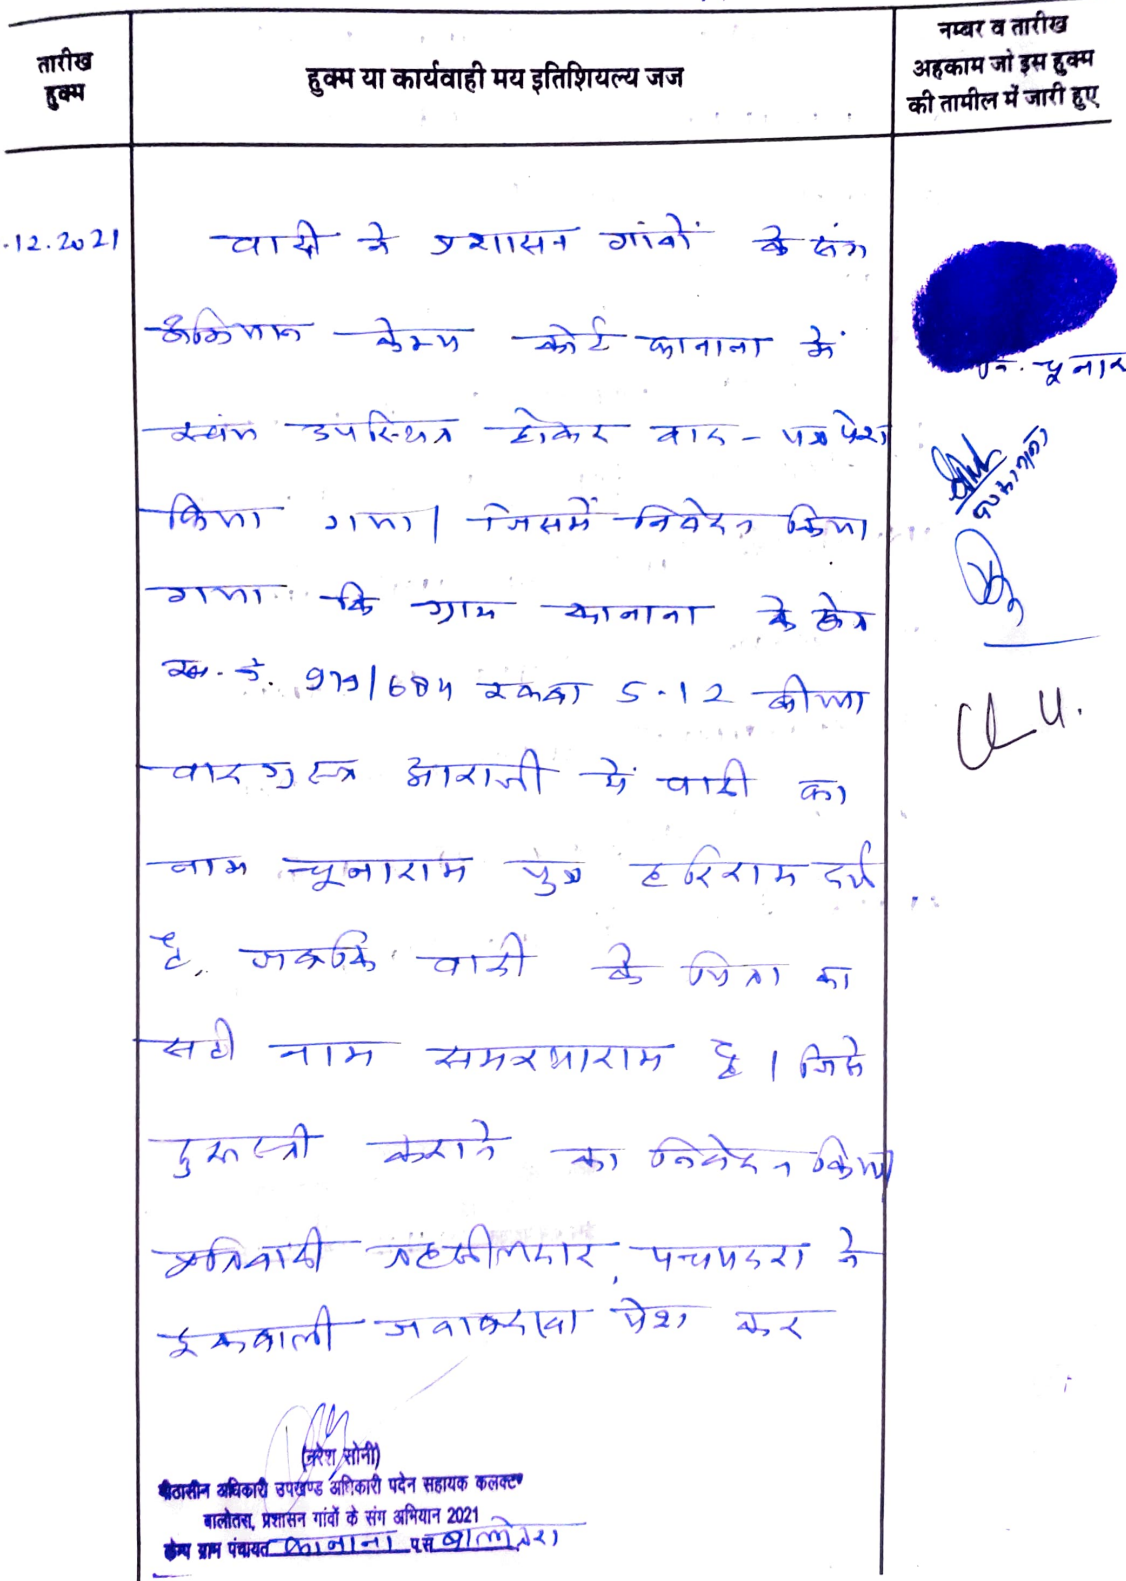 तारीख
हुक्म
हुक्म या कार्यवाही मय इतिशियल्य जज
नम्बर व तारीख
अहकाम जो इस हुक्म
की तामील में जारी हुए
.12.2021
वादी ने प्रशासन गांवों के संग
अभियान केम्प कोर्ट कानाना में
स्वंय उपस्थित होकर वाद - पत्र पेश
किया गया। जिसमें निवेदन किया
गया कि ग्राम कानाना के क्षेत्र
ख. नं. 979/684 रकबा 5.12 बीघा
वादग्रस्त आराजी में वादी का
नाम चूनाराम पुत्र हरिराम दर्ज
है, जबकि वादी के पिता का
सही नाम समरथाराम है। जिसे
दुरूस्ती कराने का निवेदन किया
प्रतिवादी तहसीलदार, पचपदरा ने
इकबाली जवाबदावा पेश कर
चूनार
(नरेश सोनी)
पीठासीन अधिकारी उपखण्ड अधिकारी पदेन सहायक कलक्टर
बालोतरा, प्रशासन गांवों के संग अभियान 2021
केम्प ग्राम पंचायत कानाना प.स. बालोतरा